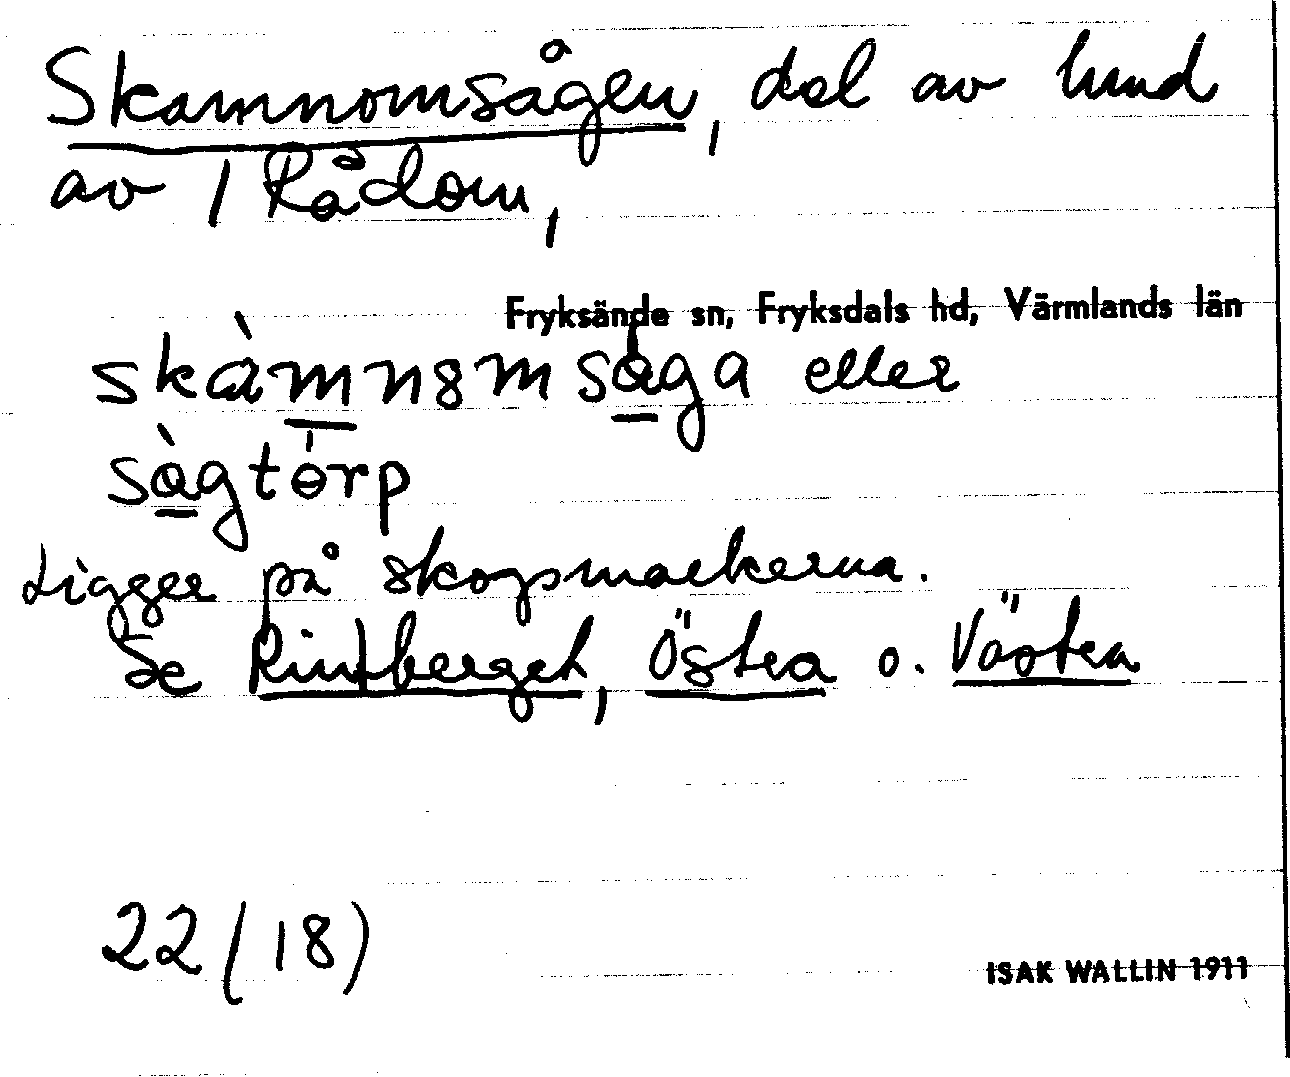 Skamnomsågen, del av hmd
av 1 Rådom,
Fryksände sn, Fryksdals hd, Värmlands län
skàmnɷmsåga eller
sàgtɵ́rp
Ligger på skogsmarkerna.
Se Rintberget, Östra o. Västra
22 (18)
ISAK WALLIN 1911